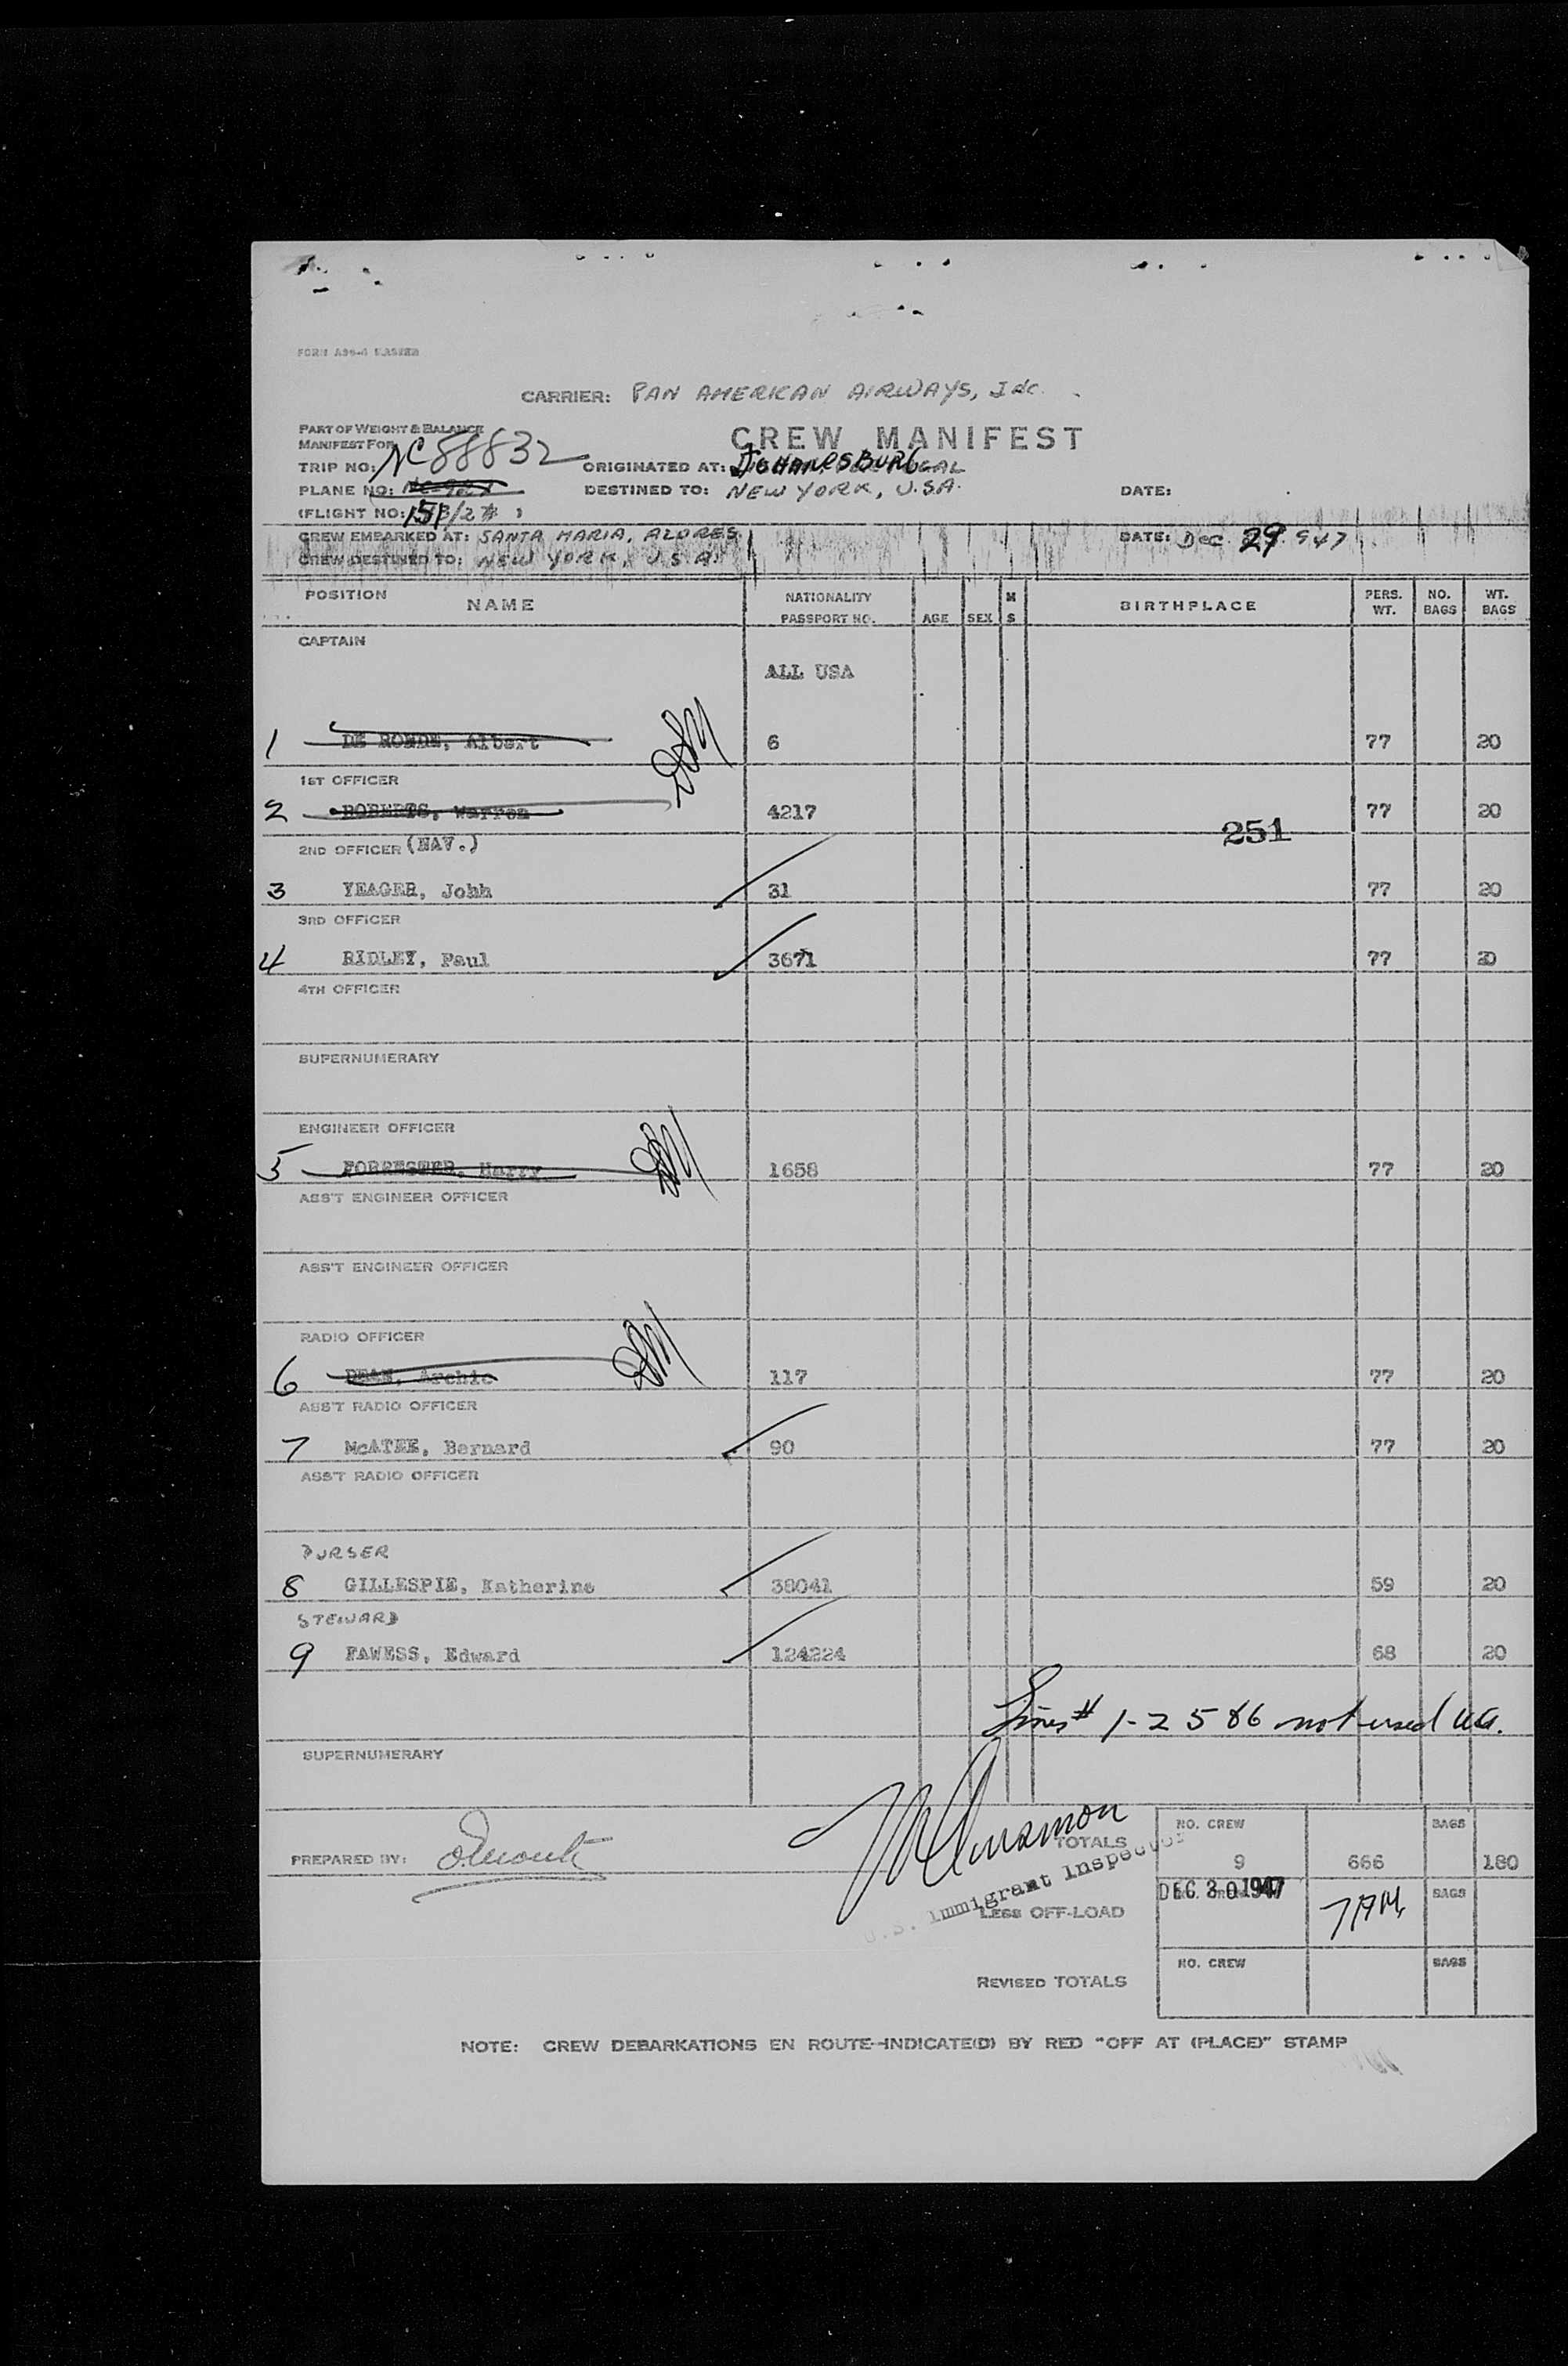 FORM A96-4 MASTER
CARRIER: PAN AMERICAN AIRWAYS, Inc.
PART OF WEIGHT & BALANCE
MANIFEST FOR
CREW MANIFEST
TRIP NO: NC 88832 ORIGINATED AT: JOHANESBURG
PLANE NO: DESTINED TO: NEW YORK, U.S.A. DATE:
(FLIGHT NO: )
CREW EMBARKED AT: SANTA MARIA, AZORES. DATE: Dec 29 947
CREW DESTINED TO: NEW YORK, U.S.A.
POSITION NAME NATIONALITY PASSPORT NO. AGE SEX M S BIRTHPLACE PERS. WT. NO. BAGS WT. BAGS
CAPTAIN
ALL USA
1 Albert 6 77 20
1ST OFFICER
2 ROBERTS, Warren 4217 77 20
251
2ND OFFICER (NAV.)
3 YEAGER, Johh 31 77 20
3RD OFFICER
4 RIDLEY, Paul 3671 77 20
4TH OFFICER
SUPERNUMERARY
ENGINEER OFFICER
5 FORRESTER, Harry 1658 77 20
ASS'T ENGINEER OFFICER
ASS'T ENGINEER OFFICER
RADIO OFFICER
6 DEAN, Archie 117 77 20
ASS'T RADIO OFFICER
7 McATEE, Bernard 90 77 20
ASS'T RADIO OFFICER
PURSER
8 GILLESPIE, Katherine 38041 59 20
STEWARD
9 FAWESS, Edward 124224 68 20
Lines # 1-2 5 & 6 not used
SUPERNUMERARY
PREPARED BY: TOTALS NO. CREW 9 666 BAGS 180
U.S. Immigrant Inspector
DEC 30 1947
LESS OFF-LOAD 7AM BAGS
REVISED TOTALS NO. CREW BAGS
NOTE: CREW DEBARKATIONS EN ROUTE-INDICATE(D) BY RED "OFF AT (PLACE)" STAMP